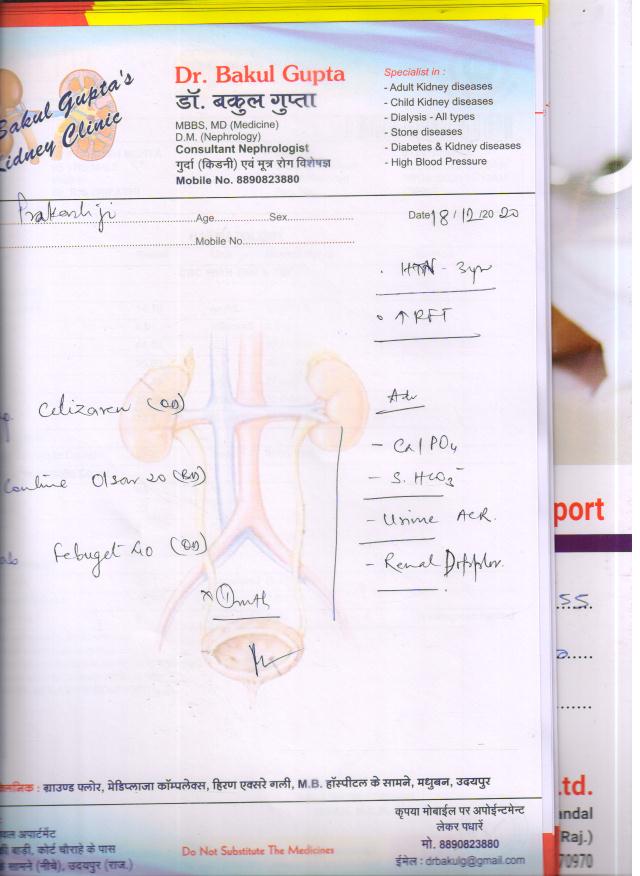 Bakul Gupta's
Kidney Clinic
Dr. Bakul Gupta
डॉ. बकुल गुप्ता
MBBS, MD (Medicine)
D.M. (Nephrology)
Consultant Nephrologist
गुर्दा (किडनी) एवं मूत्र रोग विशेषज्ञ
Mobile No. 8890823880
Specialist in :
- Adult Kidney diseases
- Child Kidney diseases
- Dialysis - All types
- Stone diseases
- Diabetes & Kidney diseases
- High Blood Pressure
Prakashji Age Sex Date 18/12/2020
Mobile No.
HTN - 3yr
↑ RFT
Adv
Celizaren (OD)
- Ca/PO4
Olsar 20 (BD)
- S. HCO3-
- Urine ACR.
Febuget 40 (OD)
- Renal Doppler.
x 1 mth
port
क्लिनिक : ग्राउण्ड फ्लोर, मेडिप्लाजा कॉम्पलेक्स, हिरण एक्सरे गली, M.B. हॉस्पीटल के सामने, मधुबन, उदयपुर
अपार्टमेंट
बाड़ी, कोर्ट चौराहे के पास
सामने (नीचे), उदयपुर (राज.)
Do Not Substitute The Medicines
कृपया मोबाईल पर अपोईन्टमेन्ट
लेकर पधारें
मो. 8890823880
ईमेल : drbakulg@gmail.com
td.
andal
Raj.)
70970